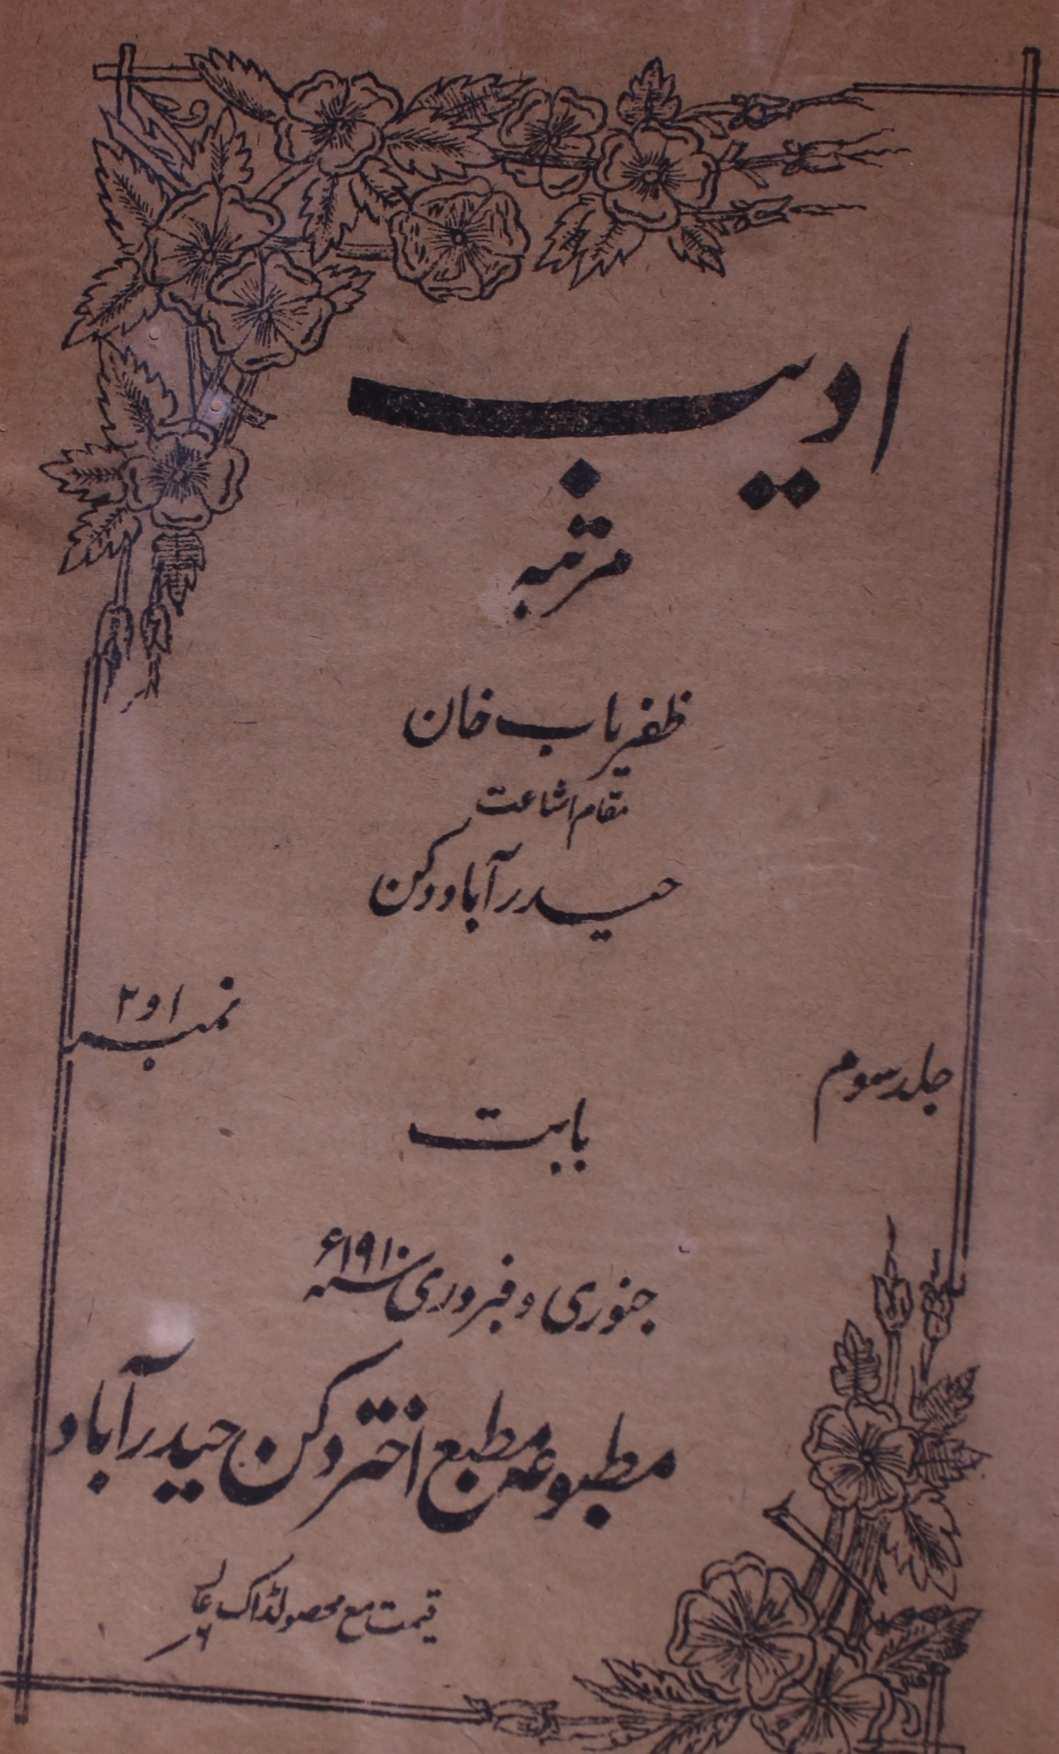 ادیب
مرتبہ
ظفریاب خان
مقام اشاعت
حیدرآباد دکن
جلد سوم
نمبر ۱ و ۲
بابت
جنوری و فبروری سنہ ۱۹۱۰ء
مطبوعہ مطبع اختر دکن حیدرآباد
قیمت مع محصولڈاک